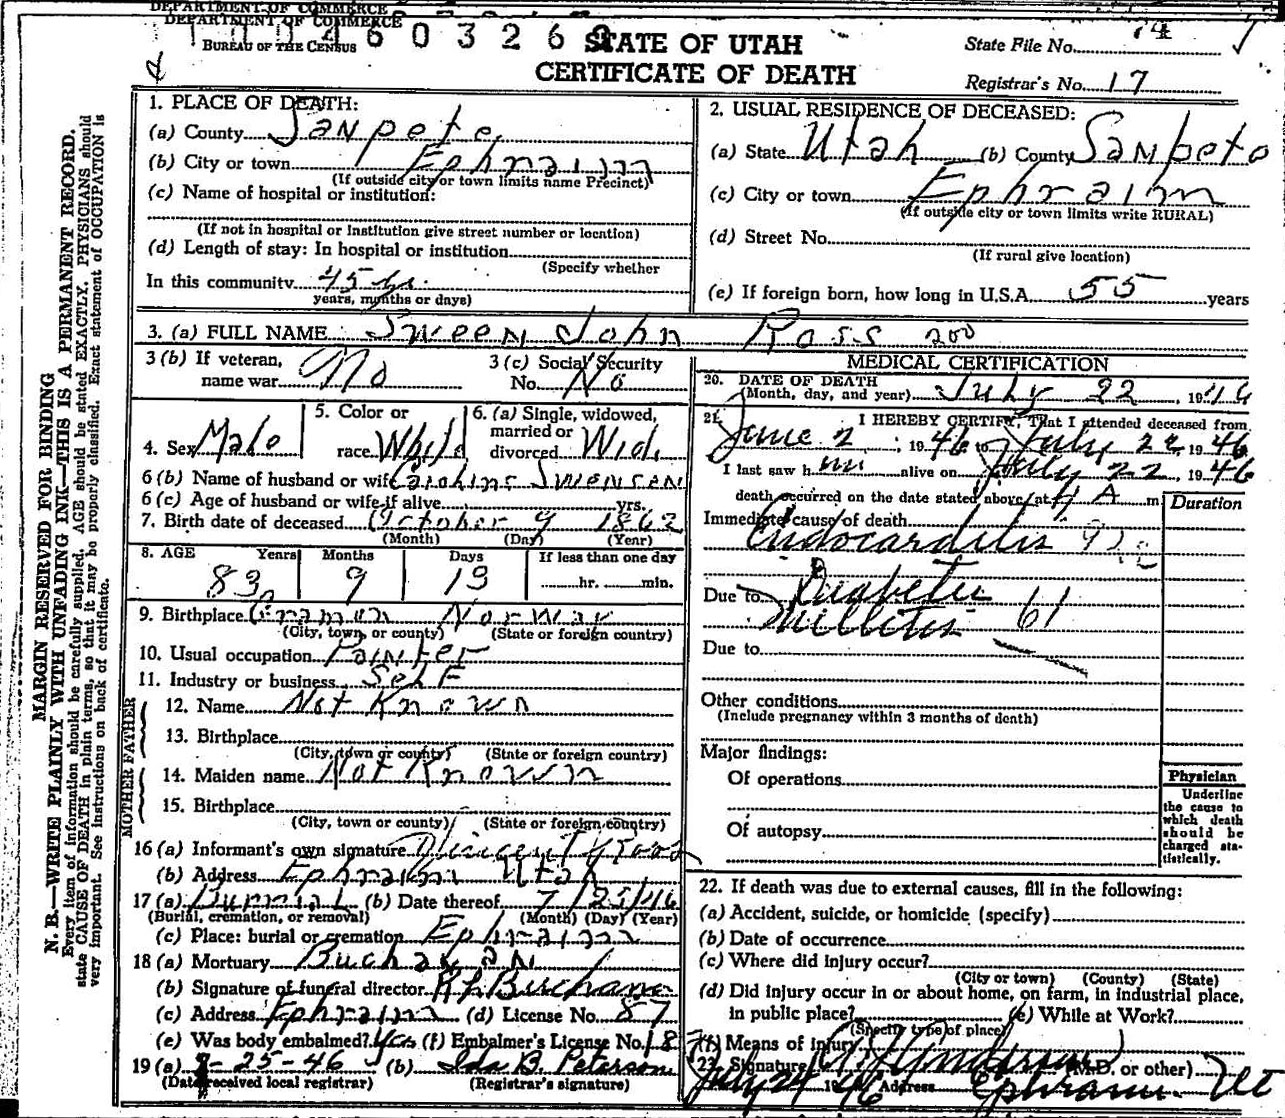 DEPARTMENT OF COMMERCE
DEPARTMENT OF COMMERCE
BUREAU OF THE CENSUS
STATE OF UTAH
CERTIFICATE OF DEATH
State File No. 74
Registrar's No. 17
MARGIN RESERVED FOR BINDING
N. B.—WRITE PLAINLY WITH UNFADING INK—THIS IS A PERMANENT RECORD.
Every item of information should be carefully supplied. AGE should be stated EXACTLY. PHYSICIANS should
state CAUSE OF DEATH in plain terms, so that it may be properly classified. Exact statement of OCCUPATION is
very important. See instructions on back of certificate.
1. PLACE OF DEATH:
(a) County Sanpete
(b) City or town Ephraim
(If outside city or town limits name Precinct)
(c) Name of hospital or institution:
(If not in hospital or institution give street number or location)
(d) Length of stay: In hospital or institution
(Specify whether
In this community 45 yrs.
years, months or days)
2. USUAL RESIDENCE OF DECEASED:
(a) State Utah (b) County Sanpete
(c) City or town Ephraim
(If outside city or town limits write RURAL)
(d) Street No.
(If rural give location)
(e) If foreign born, how long in U.S.A. 55 years
3. (a) FULL NAME Sween John Ross 200
3 (b) If veteran, name war No
3 (c) Social Security No. No
4. Sex Male
5. Color or race White
6. (a) Single, widowed, married or divorced Wid.
6 (b) Name of husband or wife Swensen
6 (c) Age of husband or wife if alive yrs.
7. Birth date of deceased October 9 1862
(Month) (Day) (Year)
8. AGE Years Months Days If less than one day
83 9 13 hr. min.
9. Birthplace Norway
(City, town, or county) (State or foreign country)
10. Usual occupation Painter
11. Industry or business Self
FATHER
12. Name Not Known
13. Birthplace
(City, town or county) (State or foreign country)
MOTHER
14. Maiden name Not Known
15. Birthplace
(City, town or county) (State or foreign country)
16 (a) Informant's own signature Vincent Ross
(b) Address Ephraim Utah
17 (a) Burrial (b) Date thereof 7/25/46
(Burial, cremation, or removal) (Month) (Day) (Year)
(c) Place: burial or cremation Ephraim
18 (a) Mortuary Buchanan
(b) Signature of funeral director
(c) Address Ephraim (d) License No. 87
(e) Was body embalmed? Yes (f) Embalmer's License No.
19 (a) 7-25-46 (b) Ida B. Peterson
(Date received local registrar) (Registrar's signature)
MEDICAL CERTIFICATION
20. DATE OF DEATH
(Month, day, and year) July 22, 1946
21. I HEREBY CERTIFY, That I attended deceased from
June 2, 1946 to July 22, 1946
I last saw him alive on July 22, 1946
death occurred on the date stated above, at 4 A m
Duration
Immediate cause of death
Endocarditis
Due to Diabetes
Mellitus 61
Due to
Other conditions
(Include pregnancy within 3 months of death)
Major findings:
Of operations
Of autopsy
Physician
Underline
the cause to
which death
should be
charged sta-
tistically.
22. If death was due to external causes, fill in the following:
(a) Accident, suicide, or homicide (specify)
(b) Date of occurrence
(c) Where did injury occur?
(City or town) (County) (State)
(d) Did injury occur in or about home, on farm, in industrial place,
in public place? (e) While at Work?
(Specify type of place)
(f) Means of injury
23. Signature (M.D. or other)
July 24 1946 Address Ephraim Ut